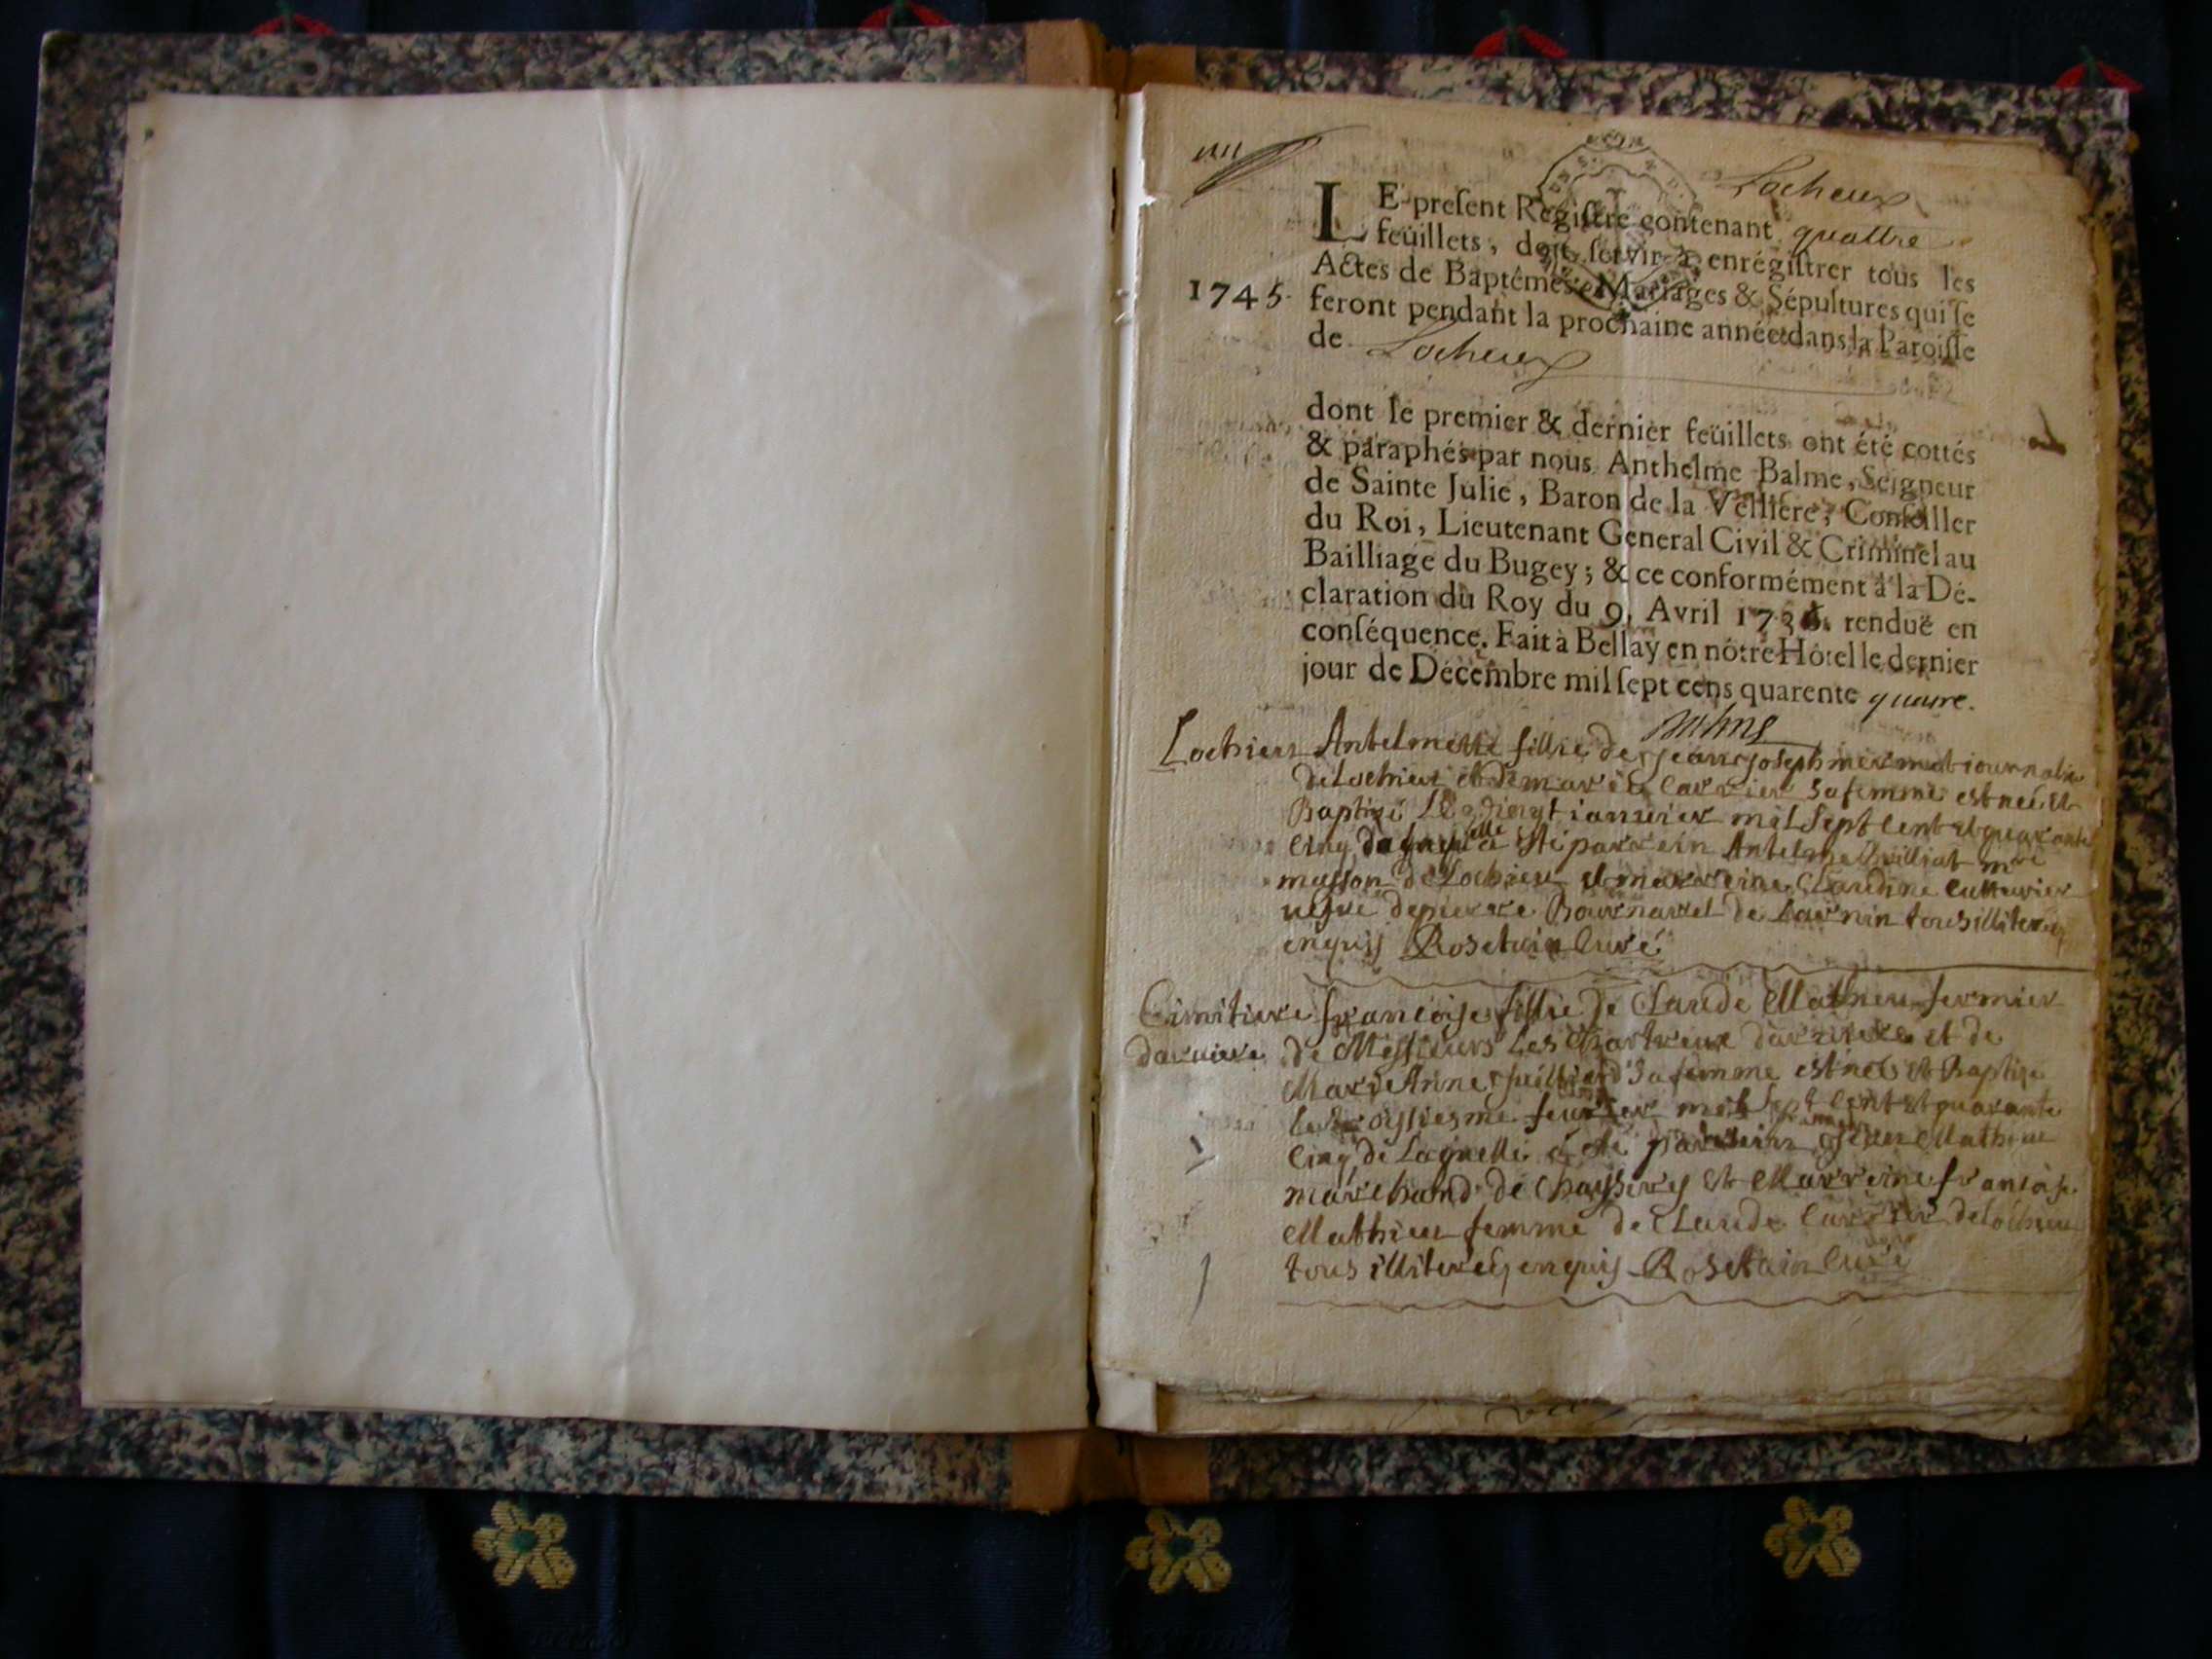 Locheux
LE present Registre contenant quattre
feüillets, doit servir à enrégistrer tous les
Actes de Baptêmes, Mariages & Sépultures qui se
1745 feront pendant la prochaine année dans la Paroisse
de Locheux
dont le premier & dernier feüillets ont été cottés
& paraphés par nous Anthelme Balme, Seigneur
de Sainte Julie, Baron de la Velliere, Conseiller
du Roi, Lieutenant General Civil & Criminel au
Bailliage du Bugey; & ce conformément à la Dé-
claration du Roy du 9. Avril 1736. renduë en
conséquence. Fait à Bellay en nôtre Hôtel le dernier
jour de Décembre mil sept cens quarente quatre.
Lochieu Antelmette fillie de jean joseph mermet journalie
de Lochieu et de marie carrier sa femme est neé et
Baptizé le vingt ianuier mil sept cent et quarante
cinq de laquelle a été parrein Antelme
masson de Lochieu et marreine Claudine cutturier
uefue de pierre Bournarel de tous illiterez
enquis Rosetain Curé
Cimitiere francoise fillie de Claude Mathieu fermier
daruiere de Messieurs les Chartreux daruiere et de
Marie Anne sa femme est neé et Baptize
le troissiesme feurier mil sept cent et quarante
cinq de Laquelle a été parrein Mathieu
marchand de Chayssery et Marreine francoise
Mathieu femme de Claude Carrier de Lochieu
tous illiterez enquis Rosetain Curé